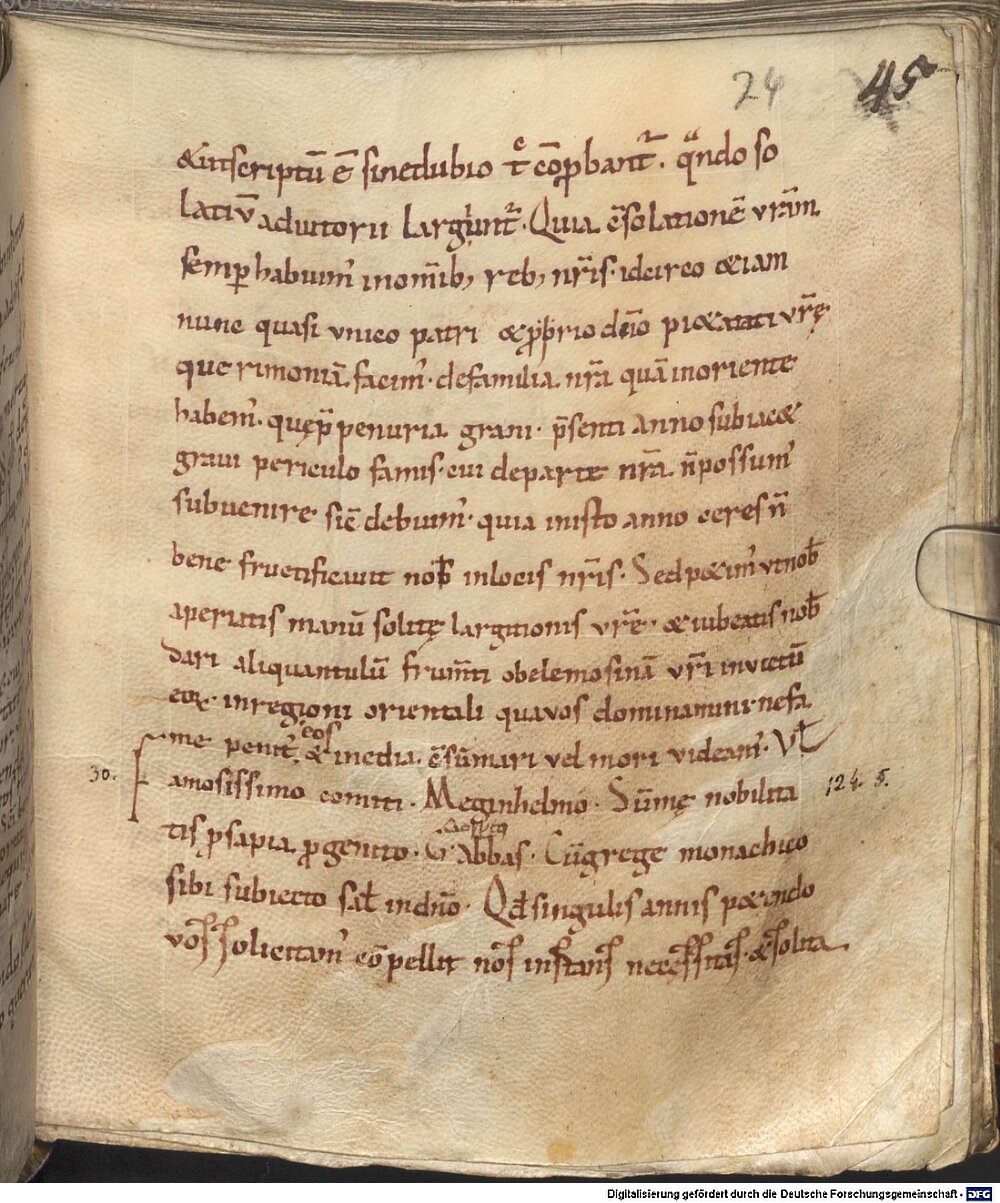 24 45
&utscriptū ē sinedubio t̄c cōpbant᷑. qn̄do so
latiū adiutorii largiunt᷑. Quia c̄solationē vrām
semp habuim᷒ inomib; reb; nr̄is. idcirco &iam
nunc quasi vnico patri & pprio dn̄o pi&ati vr̄ę
querimoniā facim᷒. defamilia nr̄a quā inoriente
habem᷒. quę p̄ penuria grani. p̄senti anno subiac&
graui periculo famis. cui departe nr̄a n̄ possum᷒
subuenire sic̄ debuim᷒. quia inisto anno ceres n̄
bene fructificauit nob̄ inlocis nr̄is. Sed p&im᷒ vt nob̄
aperiatis manū solitę largitionis vr̄ę. & iubeatis nob̄
dari aliquantulū frum̄ti obelemosinā vr̄i inuictū
eoꝝ. inregioni orientali quavos dominamini. nefa
me penit᷒ eos & inedia c̄sūmari vel mori videam᷒. Vł
30. amosissimo comiti. Meginhelmo. Sūmę nobilita 124. 5.
tis psapia pgenito. G. Gozpto abbas. Cū grege monachico
sibi subiecto sał in dn̄o. Qd̄ singulis annis p&endo
vos sollicitam᷒ cōpellit nos instans necessitas. & solita
Digitalisierung gefördert durch die Deutsche Forschungsgemeinschaft - DFG